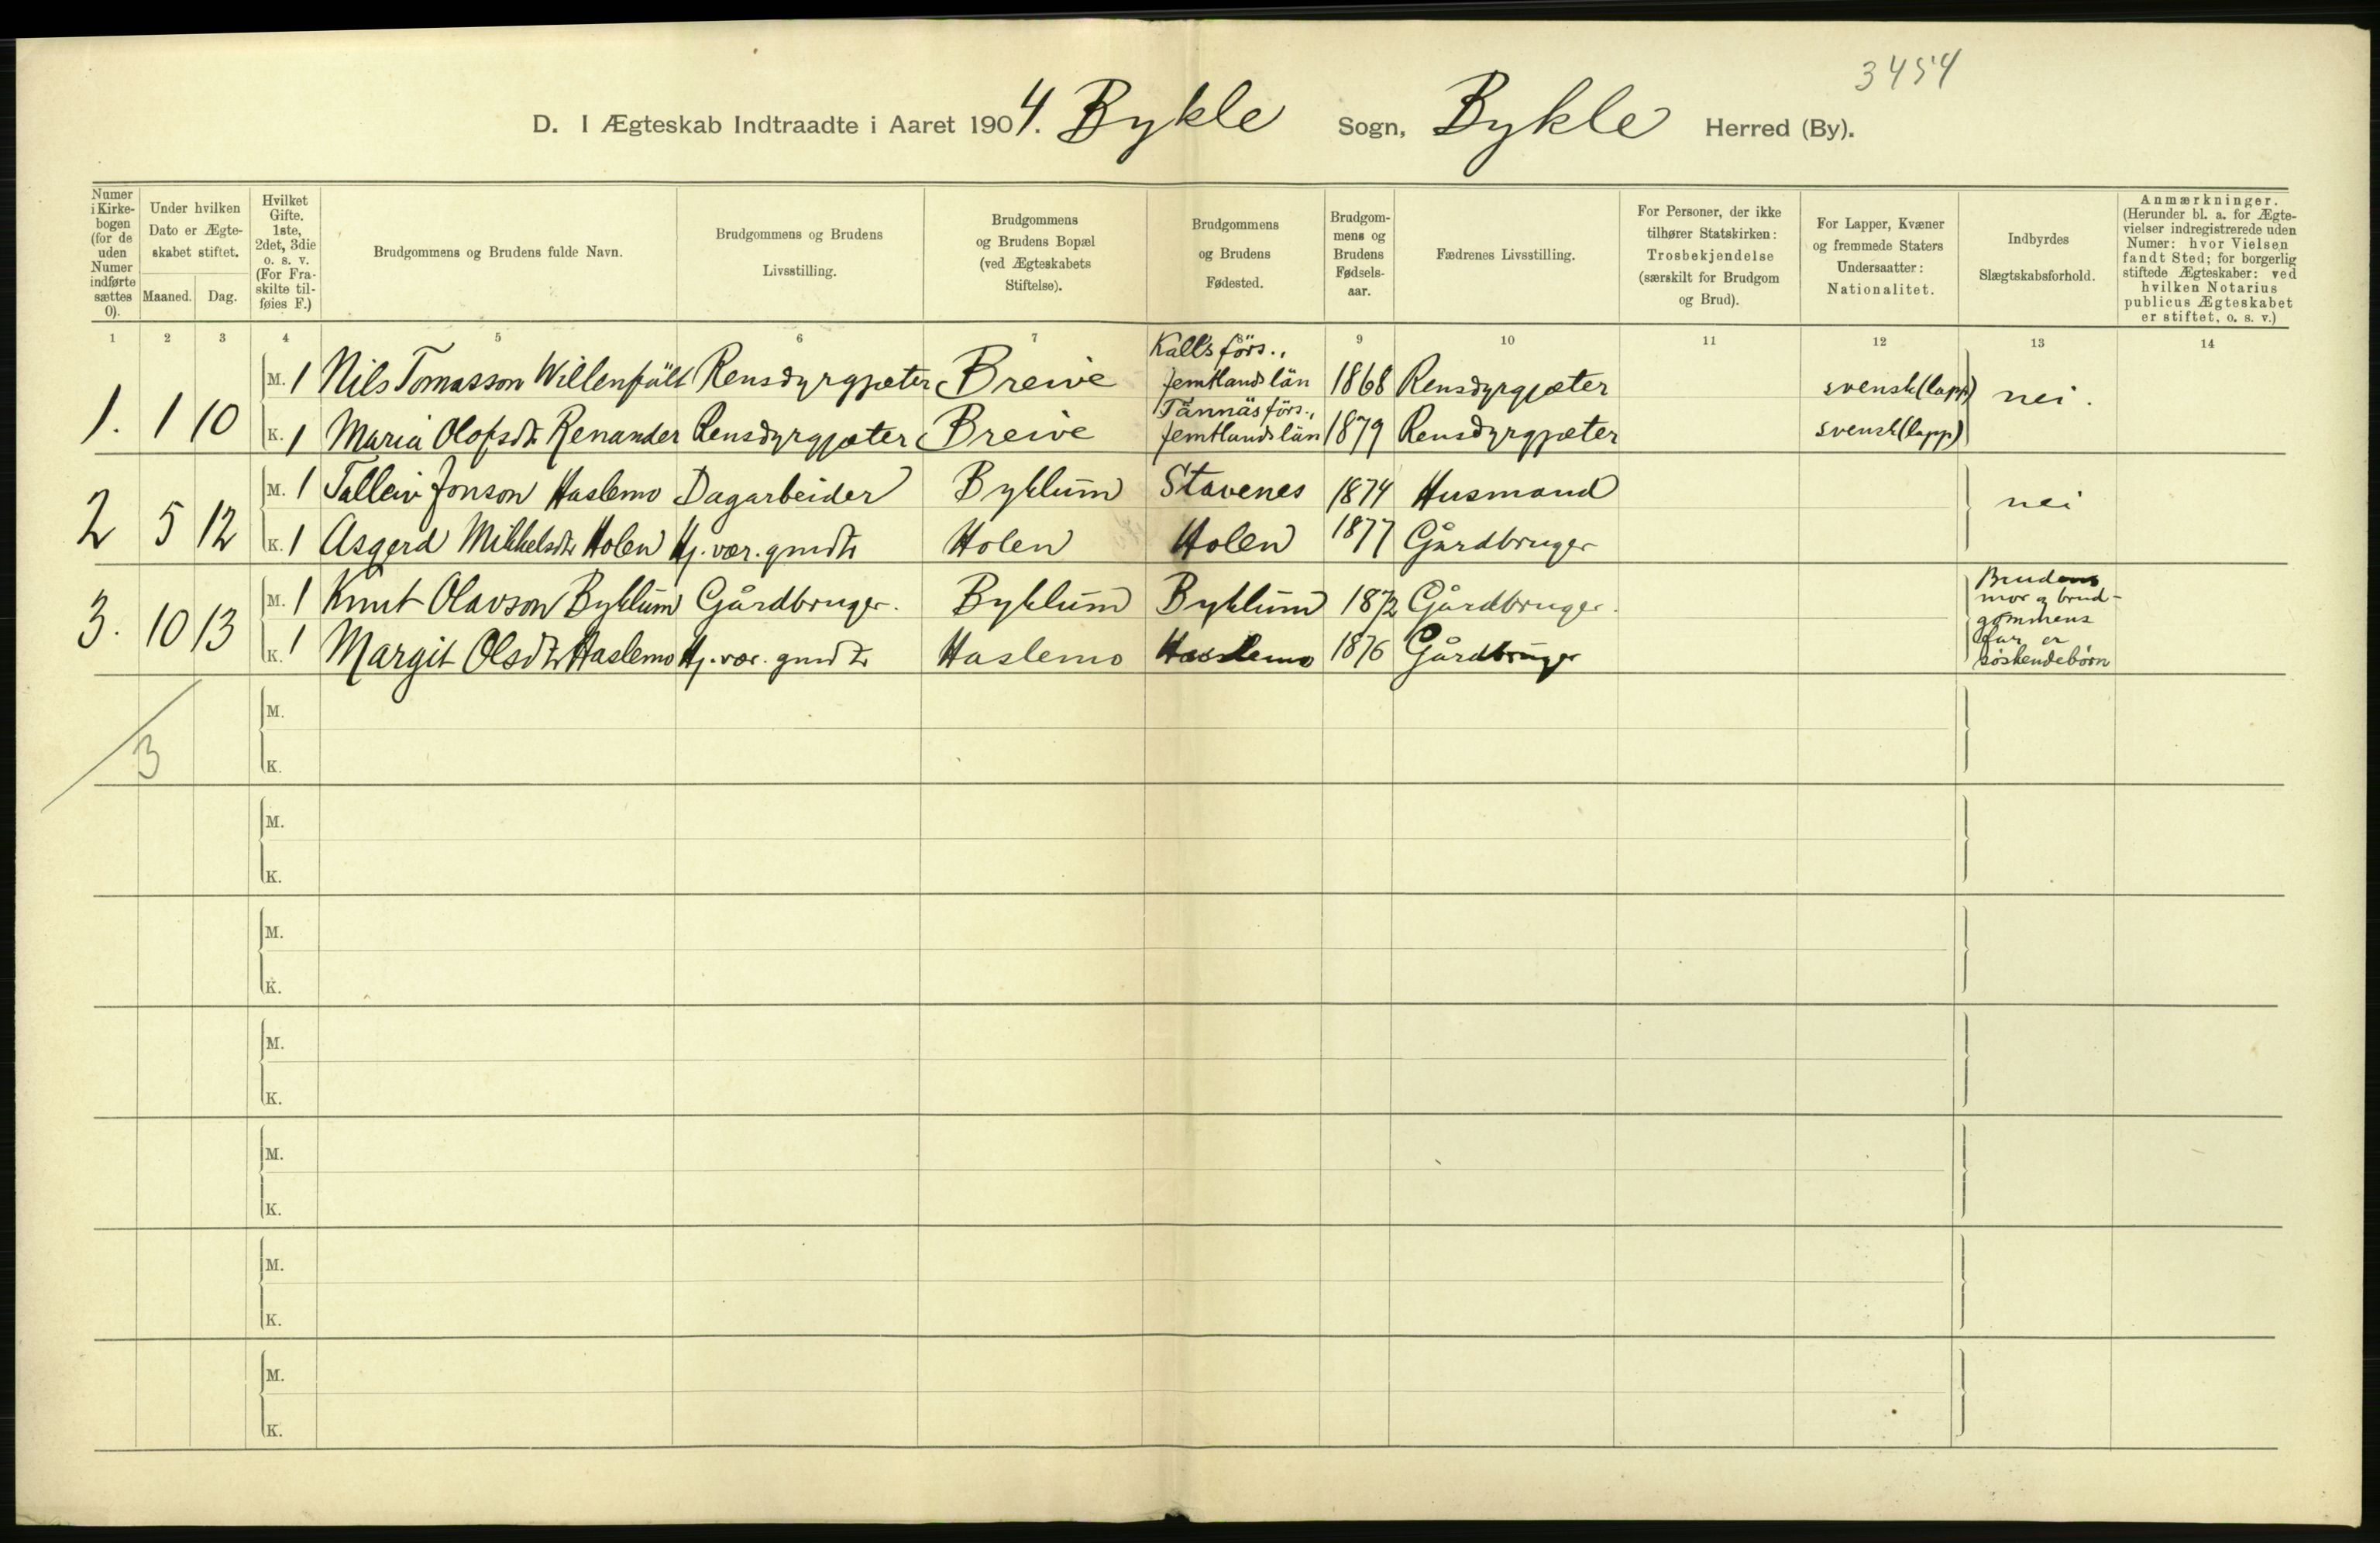 3454
D. I Ægteskab Indtraadte i Aaret 1904. Bykle Sogn, Bykle Herred (By).
Numer i Kirke- bogen (for de uden Numer indførte sættes 0).
Under hvilken Dato er Ægte- skabet stiftet.
Maaned. Dag.
Hvilket Gifte. 1ste, 2det, 3die o. s. v. (For Fra- skilte til- føies F.)
Brudgommens og Brudens fulde Navn.
Brudgommens og Brudens Livsstilling.
Brudgommens og Brudens Bopæl (ved Ægteskabets Stiftelse).
Brudgommens og Brudens Fødested.
Brudgom- mens og Brudens Fødsels- aar.
Fædrenes Livsstilling.
For Personer, der ikke tilhører Statskirken: Trosbekjendelse (særskilt for Brudgom og Brud).
For Lapper, Kvæner og fremmede Staters Undersaatter: Nationalitet.
Indbyrdes Slægtskabsforhold.
Anmærkninger. (Herunder bl. a. for Ægte- vielser indregistrerede uden Numer: hvor Vielsen fandt Sted; for borgerlig stiftede Ægteskaber: ved hvilken Notarius publicus Ægteskabet er stiftet, o. s. v.)
1 2 3 4 5 6 7 9 10 11 12 13 14
1. 1 10
M. 1 Nils Tomasson Willenfält Rensdyrgjæter Breive Kalls förs., Jemtlands län 1868 Rensdyrgjæter svensk (lapp) nei.
K. 1 Maria Olofsdtr Renander Rensdyrgjæter Breive Tännäs förs., Jemtlands län 1879 Rensdyrgjæter svensk (lapp)
2 5 12
M. 1 Talleiv Jonson Haslemo Dagarbeider Byklum Stavenes 1874 Husmand nei
K. 1 Asgerd Mikkelsdtr Holen Hj. vær. gmdtr Holen Holen 1877 Gårdbruger
3. 10 13
M. 1 Knut Olavson Byklum Gårdbruger. Byklum Byklum 1872 Gårdbruger. Brudens mor og brud- gommens far er søskendebørn
K. 1 Margit Olsdtr Haslemo Hj. vær. gmdtr Haslemo Haslemo 1876 Gårdbruger
3
M.
K.
M.
K.
M.
K.
M.
K.
M.
K.
M.
K.
M.
K.